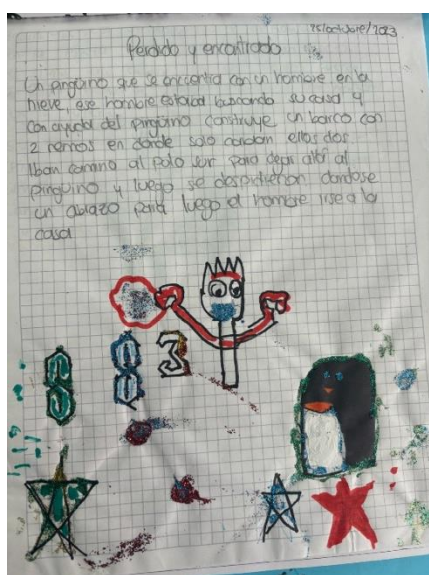 25/octubre/2023
Perdido y encontrado
Un pingüino que se encuentra con un hombre en la
nieve, ese hombre estaba buscando su casa y
con ayuda del pingüino construye un barco con
2 remos en donde solo ellos dos
Iban camino al polo sur para dejar allá al
pinguino y luego se despidieron dandose
un abrazo para luego el hombre irse a la
casa
S 8 3